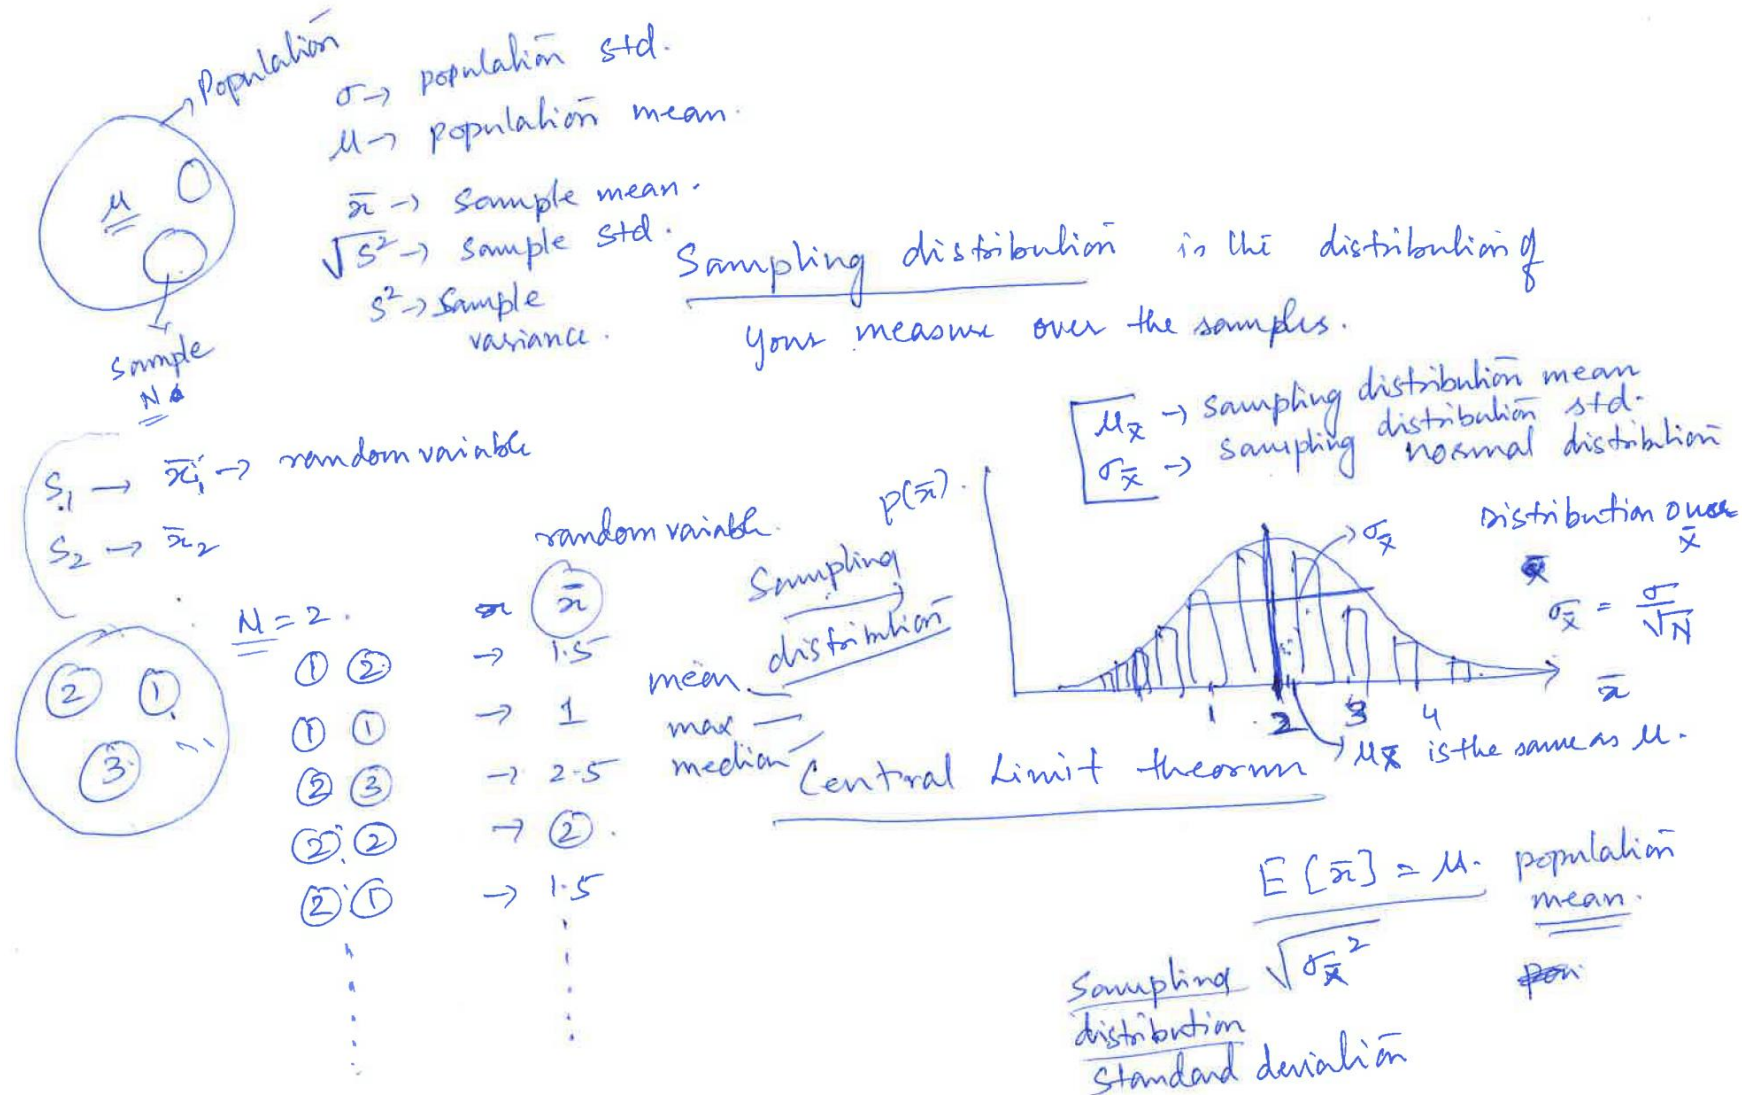 Population
σ → population std.
μ → population mean.
μ
x̄ → sample mean.
√s² → sample std.
s² → sample
variance.
sample
N
Sampling distribution is the distribution of
your measure over the samples.
μx̄ → sampling distribution mean
σx̄ → sampling distribution std.
normal distribution
S₁ → x̄₁ → random variable
S₂ → x̄₂
random variable.
x̄
N = 2.
① ② → 1.5
① ① → 1
② ③ → 2.5
② ② → ②.
② ① → 1.5
② ①
③
Sampling
distribution
mean
max
median
p(x̄).
σx̄
Distribution over
x̄
σx̄ = σ/√N
1 2 3 4
x̄
μx̄ is the same as μ.
Central Limit theorem
E[x̄] = μ. population
mean.
√σx̄²
Sampling
distribution
standard deviation